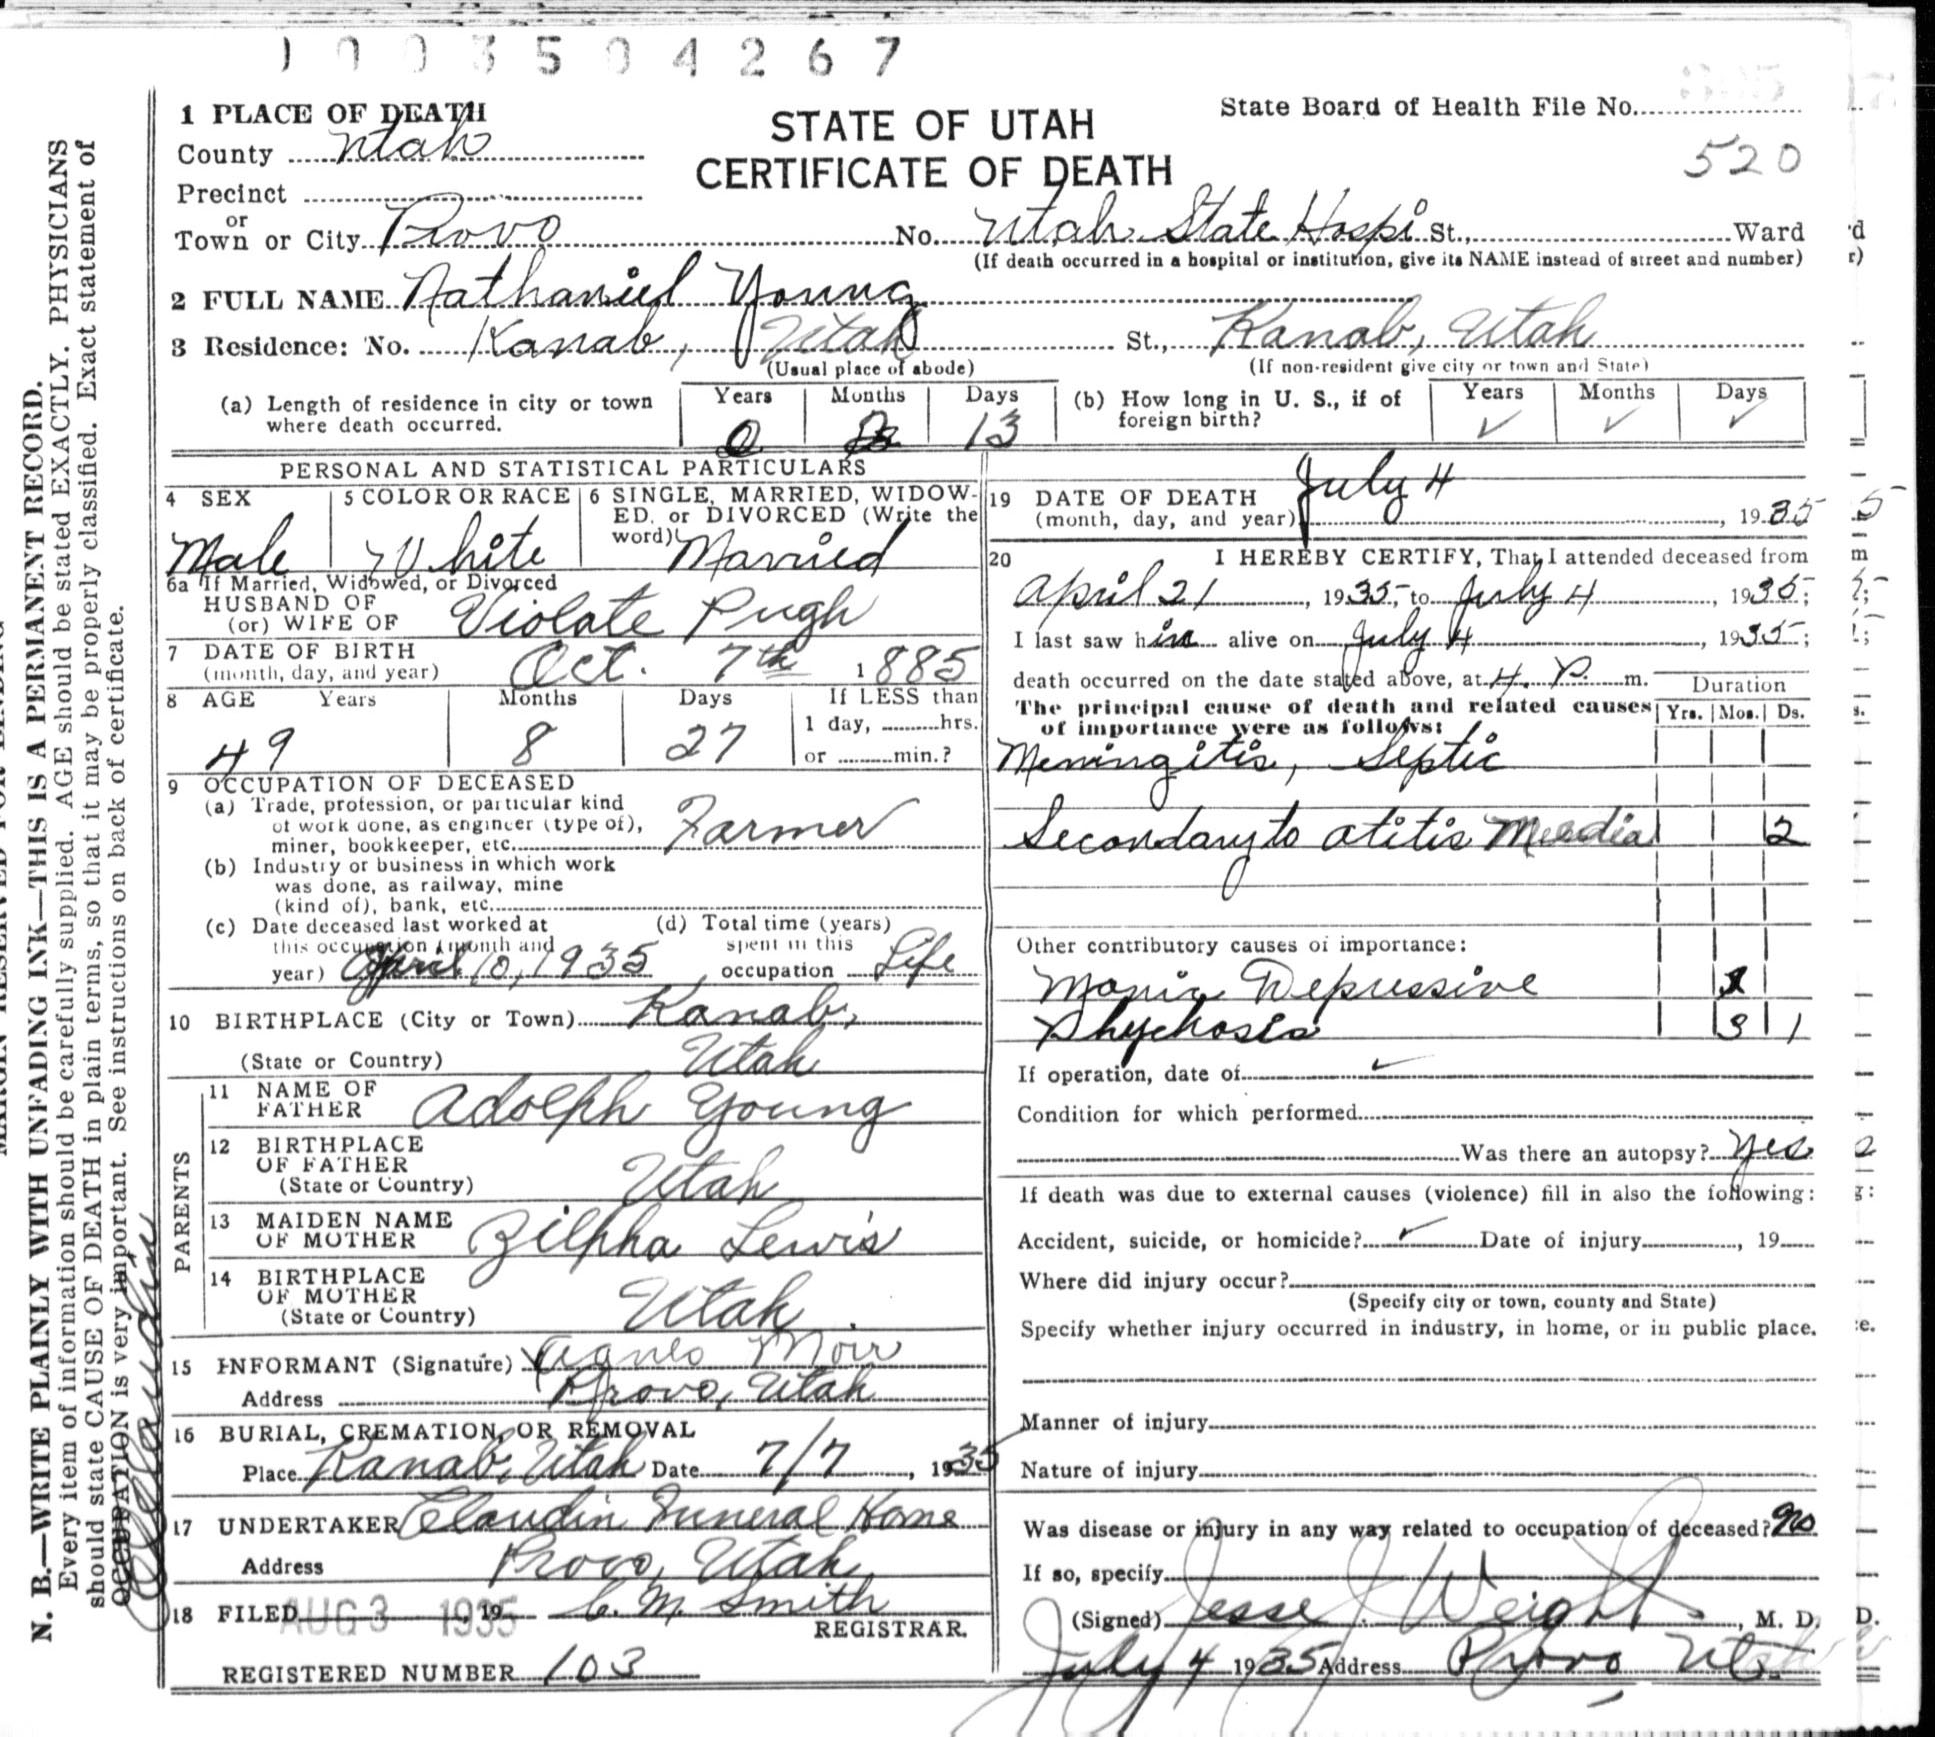 1003504267
1 PLACE OF DEATH
County Utah
STATE OF UTAH
CERTIFICATE OF DEATH
State Board of Health File No.
520
Precinct
or
Town or City Provo No. Utah State Hospi St., Ward
(If death occurred in a hospital or institution, give its NAME instead of street and number)
2 FULL NAME Nathaniel Young
3 Residence: No. Kanab, Utah St., Kanab, Utah
(Usual place of abode) (If non-resident give city or town and State)
(a) Length of residence in city or town where death occurred. Years 0 Months Days 13
(b) How long in U. S., if of foreign birth? Years ✓ Months ✓ Days ✓
PERSONAL AND STATISTICAL PARTICULARS
4 SEX
Male
5 COLOR OR RACE
White
6 SINGLE, MARRIED, WIDOW-
ED, or DIVORCED (Write the
word) Married
6a If Married, Widowed, or Divorced
HUSBAND OF
(or) WIFE OF Violate Pugh
7 DATE OF BIRTH
(month, day, and year) Oct. 7th 1885
8 AGE Years Months Days If LESS than
49 8 27 1 day, hrs.
or min.?
9 OCCUPATION OF DECEASED
(a) Trade, profession, or particular kind
of work done, as engineer (type of),
miner, bookkeeper, etc. Farmer
(b) Industry or business in which work
was done, as railway, mine
(kind of), bank, etc.
(c) Date deceased last worked at
this occupation (month and
year) April 10, 1935
(d) Total time (years)
spent in this
occupation Life
10 BIRTHPLACE (City or Town) Kanab,
(State or Country) Utah
PARENTS
11 NAME OF
FATHER Adolph Young
12 BIRTHPLACE
OF FATHER
(State or Country) Utah
13 MAIDEN NAME
OF MOTHER Zilpha Lewis
14 BIRTHPLACE
OF MOTHER
(State or Country) Utah
15 INFORMANT (Signature) Agnes Moir
Address Provo, Utah
16 BURIAL, CREMATION, OR REMOVAL
Place Kanab, Utah Date 7/7, 1935
17 UNDERTAKER Claudin Funeral Home
Address Provo, Utah
18 FILED AUG 3 1935, 19 C. M. Smith
REGISTRAR.
REGISTERED NUMBER 103
19 DATE OF DEATH
(month, day, and year) July 4, 1935
20 I HEREBY CERTIFY, That I attended deceased from
April 21, 1935, to July 4, 1935;
I last saw him alive on July 4, 1935;
death occurred on the date stated above, at 4. P. m.
The principal cause of death and related causes
of importance were as follows:
Duration
Yrs. Mos. Ds.
Meningitis, Septic
Secondary to otitis Media 2
Other contributory causes of importance:
Manic Depressive
Phychosis 3 1
If operation, date of ✓
Condition for which performed
Was there an autopsy? Yes
If death was due to external causes (violence) fill in also the following:
Accident, suicide, or homicide? ✓ Date of injury, 19
Where did injury occur?
(Specify city or town, county and State)
Specify whether injury occurred in industry, in home, or in public place.
Manner of injury
Nature of injury
Was disease or injury in any way related to occupation of deceased? No
If so, specify
(Signed) Jesse J Weight, M. D.
July 4 1935 Address Provo Ut.
N. B.—WRITE PLAINLY WITH UNFADING INK—THIS IS A PERMANENT RECORD.
Every item of information should be carefully supplied. AGE should be stated EXACTLY. PHYSICIANS
should state CAUSE OF DEATH in plain terms, so that it may be properly classified. Exact statement of
OCCUPATION is very important. See instructions on back of certificate.